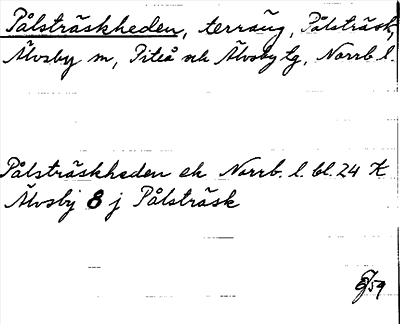 Pålsträskheden, terräng, Pålsträsk,
Älvsby sn, Piteå och Älvsby tg, Norrb. l.
Pålsträskheden ek Norrb. l. bl. 24 K
Älvsbj 8 j Pålsträsk
59